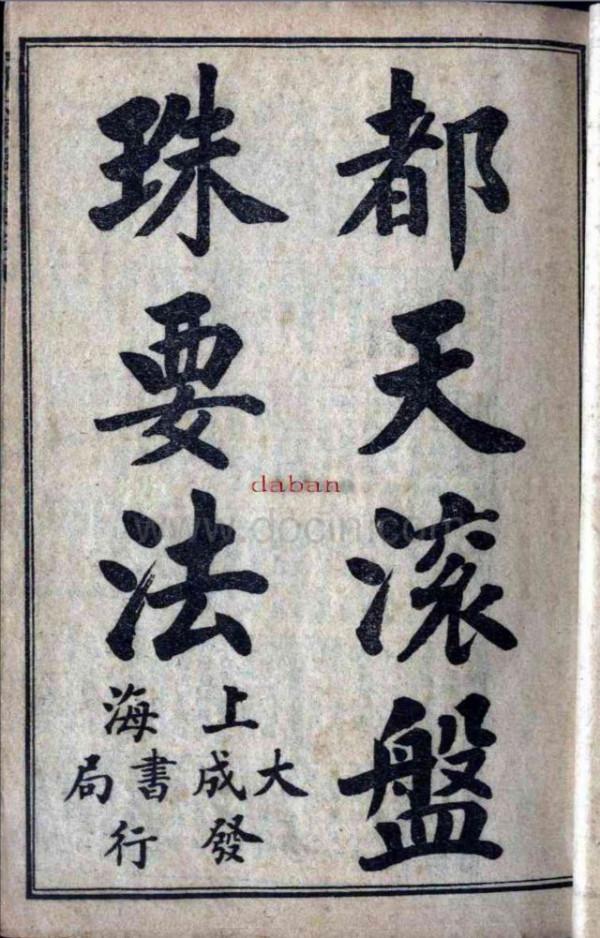 都天滚盤
珠要法
上海
大成書局
發行
daban